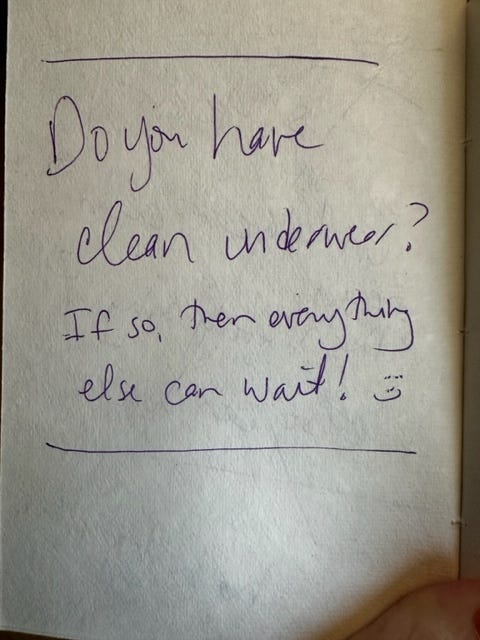 Do you have
clean underwear?
If so, then everything
else can wait! :)